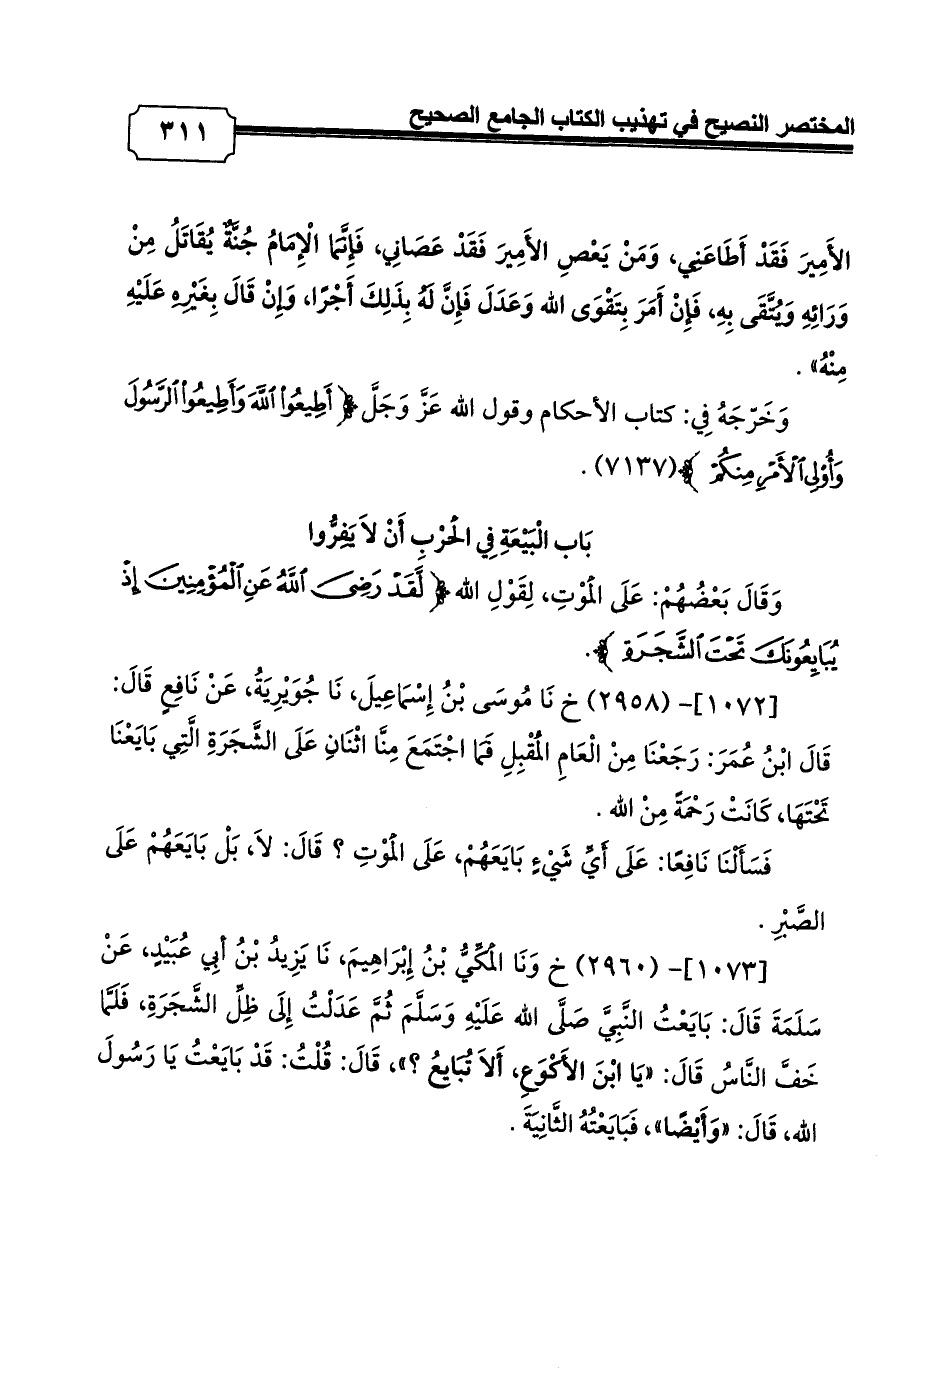 المختصر النصيح في تهذيب الكتاب الجامع الصحيح
٣١١
الأَمِيرَ فَقَدْ أَطَاعَنِي، وَمَنْ يَعْصِ الأَمِيرَ فَقَدْ عَصَانِي، فَإِنَّمَا الْإِمَامُ جُنَّةٌ يُقَاتَلُ مِنْ
وَرَائِهِ وَيُتَّقَى بِهِ، فَإِنْ أَمَرَ بِتَقْوَى الله وَعَدَلَ فَإِنَّ لَهُ بِذَلِكَ أَجْرًا، وَإِنْ قَالَ بِغَيْرِهِ عَلَيْهِ
مِنْهُ» .
وَخَرَّجَهُ فِي: كتاب الأحكام وقول الله عَزَّ وَجَلَّ ﴿ أَطِيعُواْ ٱللَّهَ وَأَطِيعُواْ ٱلرَّسُولَ
وَأُوْلِي ٱلْأَمْرِ مِنكُمْ ﴾ (٧١٣٧) .
بَاب الْبَيْعَةِ فِي الْحَرْبِ أَنْ لاَ يَفِرُّوا
وَقَالَ بَعْضُهُمْ: عَلَى الْمَوْتِ، لِقَوْلِ الله ﴿ لَّقَدْ رَضِيَ ٱللَّهُ عَنِ ٱلْمُؤْمِنِينَ إِذْ
يُبَايِعُونَكَ تَحْتَ ٱلشَّجَرَةِ ﴾.
[١٠٧٢]- (٢٩٥٨) خ نَا مُوسَى بْنُ إِسْمَاعِيلَ، نَا جُوَيْرِيَةُ، عَنْ نَافِعٍ قَالَ:
قَالَ ابْنُ عُمَرَ: رَجَعْنَا مِنْ الْعَامِ الْمُقْبِلِ فَمَا اجْتَمَعَ مِنَّا اثْنَانِ عَلَى الشَّجَرَةِ الَّتِي بَايَعْنَا
تَحْتَهَا، كَانَتْ رَحْمَةً مِنْ الله .
فَسَأَلْنَا نَافِعًا: عَلَى أَيِّ شَيْءٍ بَايَعَهُمْ، عَلَى الْمَوْتِ ؟ قَالَ: لاَ، بَلْ بَايَعَهُمْ عَلَى
الصَّبْرِ .
[١٠٧٣]- (٢٩٦٠) خ وَنَا الْمَكِّيُّ بْنُ إِبْرَاهِيمَ، نَا يَزِيدُ بْنُ أَبِي عُبَيْدٍ، عَنْ
سَلَمَةَ قَالَ: بَايَعْتُ النَّبِيَّ صَلَّى الله عَلَيْهِ وَسَلَّمَ ثُمَّ عَدَلْتُ إِلَى ظِلِّ الشَّجَرَةِ، فَلَمَّا
خَفَّ النَّاسُ قَالَ: «يَا ابْنَ الأَكْوَعِ، أَلاَ تُبَايِعُ ؟»، قَالَ: قُلْتُ: قَدْ بَايَعْتُ يَا رَسُولَ
الله، قَالَ: «وَأَيْضًا»، فَبَايَعْتُهُ الثَّانِيَةَ .